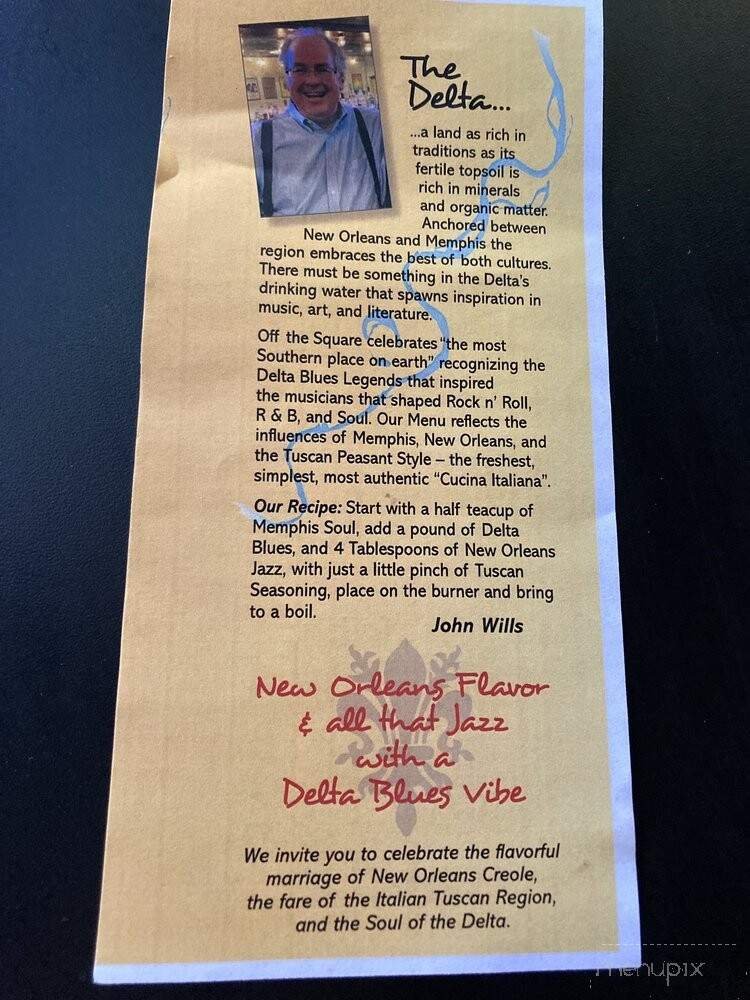 The
Delta...
...a land as rich in
traditions as its
fertile topsoil is
rich in minerals
and organic matter.
Anchored between
New Orleans and Memphis the
region embraces the best of both cultures.
There must be something in the Delta's
drinking water that spawns inspiration in
music, art, and literature.
Off the Square celebrates "the most
Southern place on earth" recognizing the
Delta Blues Legends that inspired
the musicians that shaped Rock n' Roll,
R & B, and Soul. Our Menu reflects the
influences of Memphis, New Orleans, and
the Tuscan Peasant Style – the freshest,
simplest, most authentic "Cucina Italiana".
Our Recipe: Start with a half teacup of
Memphis Soul, add a pound of Delta
Blues, and 4 Tablespoons of New Orleans
Jazz, with just a little pinch of Tuscan
Seasoning, place on the burner and bring
to a boil.
John Wills
New Orleans Flavor
& all that Jazz
with a
Delta Blues Vibe
We invite you to celebrate the flavorful
marriage of New Orleans Creole,
the fare of the Italian Tuscan Region,
and the Soul of the Delta.
menupix